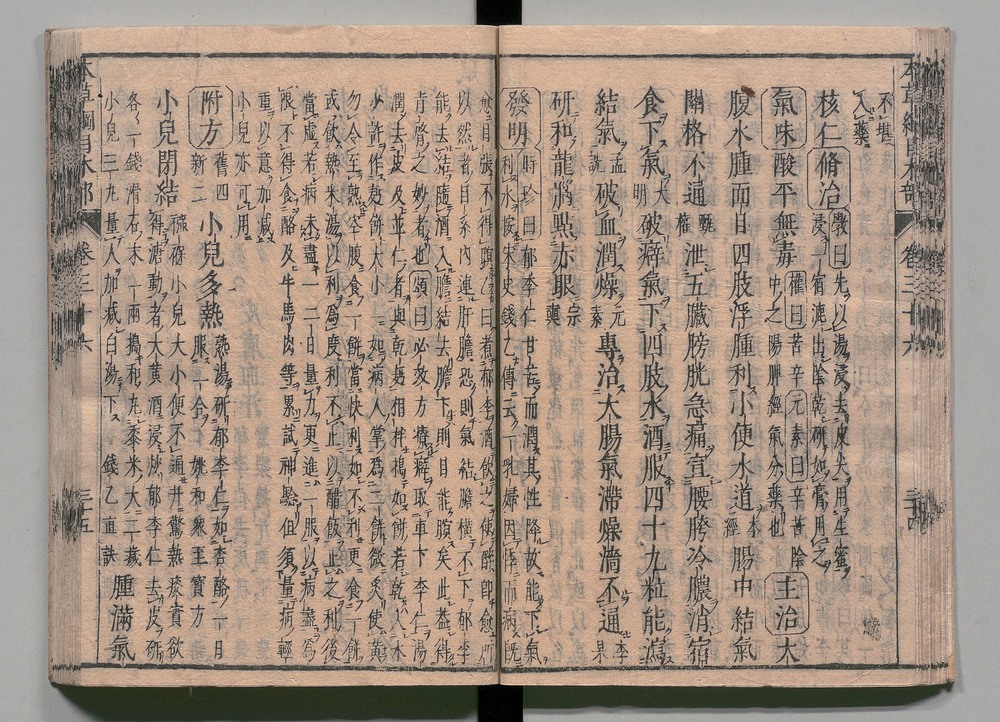 不堪
入藥
核仁 脩治 斅曰先以湯浸去皮尖用生蜜
浸一宿漉出陰乾研如膏用之
氣味 酸平無毒 權曰苦辛元素曰辛苦陰
中之陽脾經氣分藥也 主治 大
腹水腫面目四肢浮腫利小便水道 本經 腸中結氣
關格不通 甄權 泄五臟膀胱急痛宣腰胯冷膿消宿
食下氣 大明 破癖氣下四肢水酒服四十九粒能瀉
結氣 孟詵 破血潤燥 元素 專治大腸氣滯燥濇不通 李杲
研和龍腦點赤眼 宗奭
發明 時珍曰郁李仁甘苦而潤其性降故能下氣
利水按宋史錢乙傳云一乳婦因悸而病既
愈目張不得瞑乙曰煮郁李酒飲之使醉即愈所
以然者目系內連肝膽恐則氣結膽橫不下郁李
能去結隨酒入膽結去膽下則目能瞑矣此蓋得
肯綮之妙者也 頌曰必效方療癖取車下李仁湯
潤去皮及並仁者與乾麪相拌搗如餅若乾入水
少許作麪餅大小一如病人掌為二餅微炙使黃
勿令至熟空腹食一餅當快利如不利更食一餅
或飲熱米湯以利為度利不止以醋飯止之利後
當虛若病未盡一二日量力更進一服以病盡為
限不得食酪及牛馬肉等累試神驗但須量病輕
重以意加減小兒亦可用
附方 舊四新二 小兒多熱 熟湯研郁李仁如杏酪一日
服二合姚和衆至寶方
小兒閉結 襁褓小兒大小便不通并驚熱痰實欲
得溏動者大黃酒浸炒郁李仁去皮研
各一錢滑石末一兩搗和丸黍米大二歲
小兒三丸量人加減白湯下 錢乙直訣 腫滿氣
本草綱目木部 卷三十六 三十五